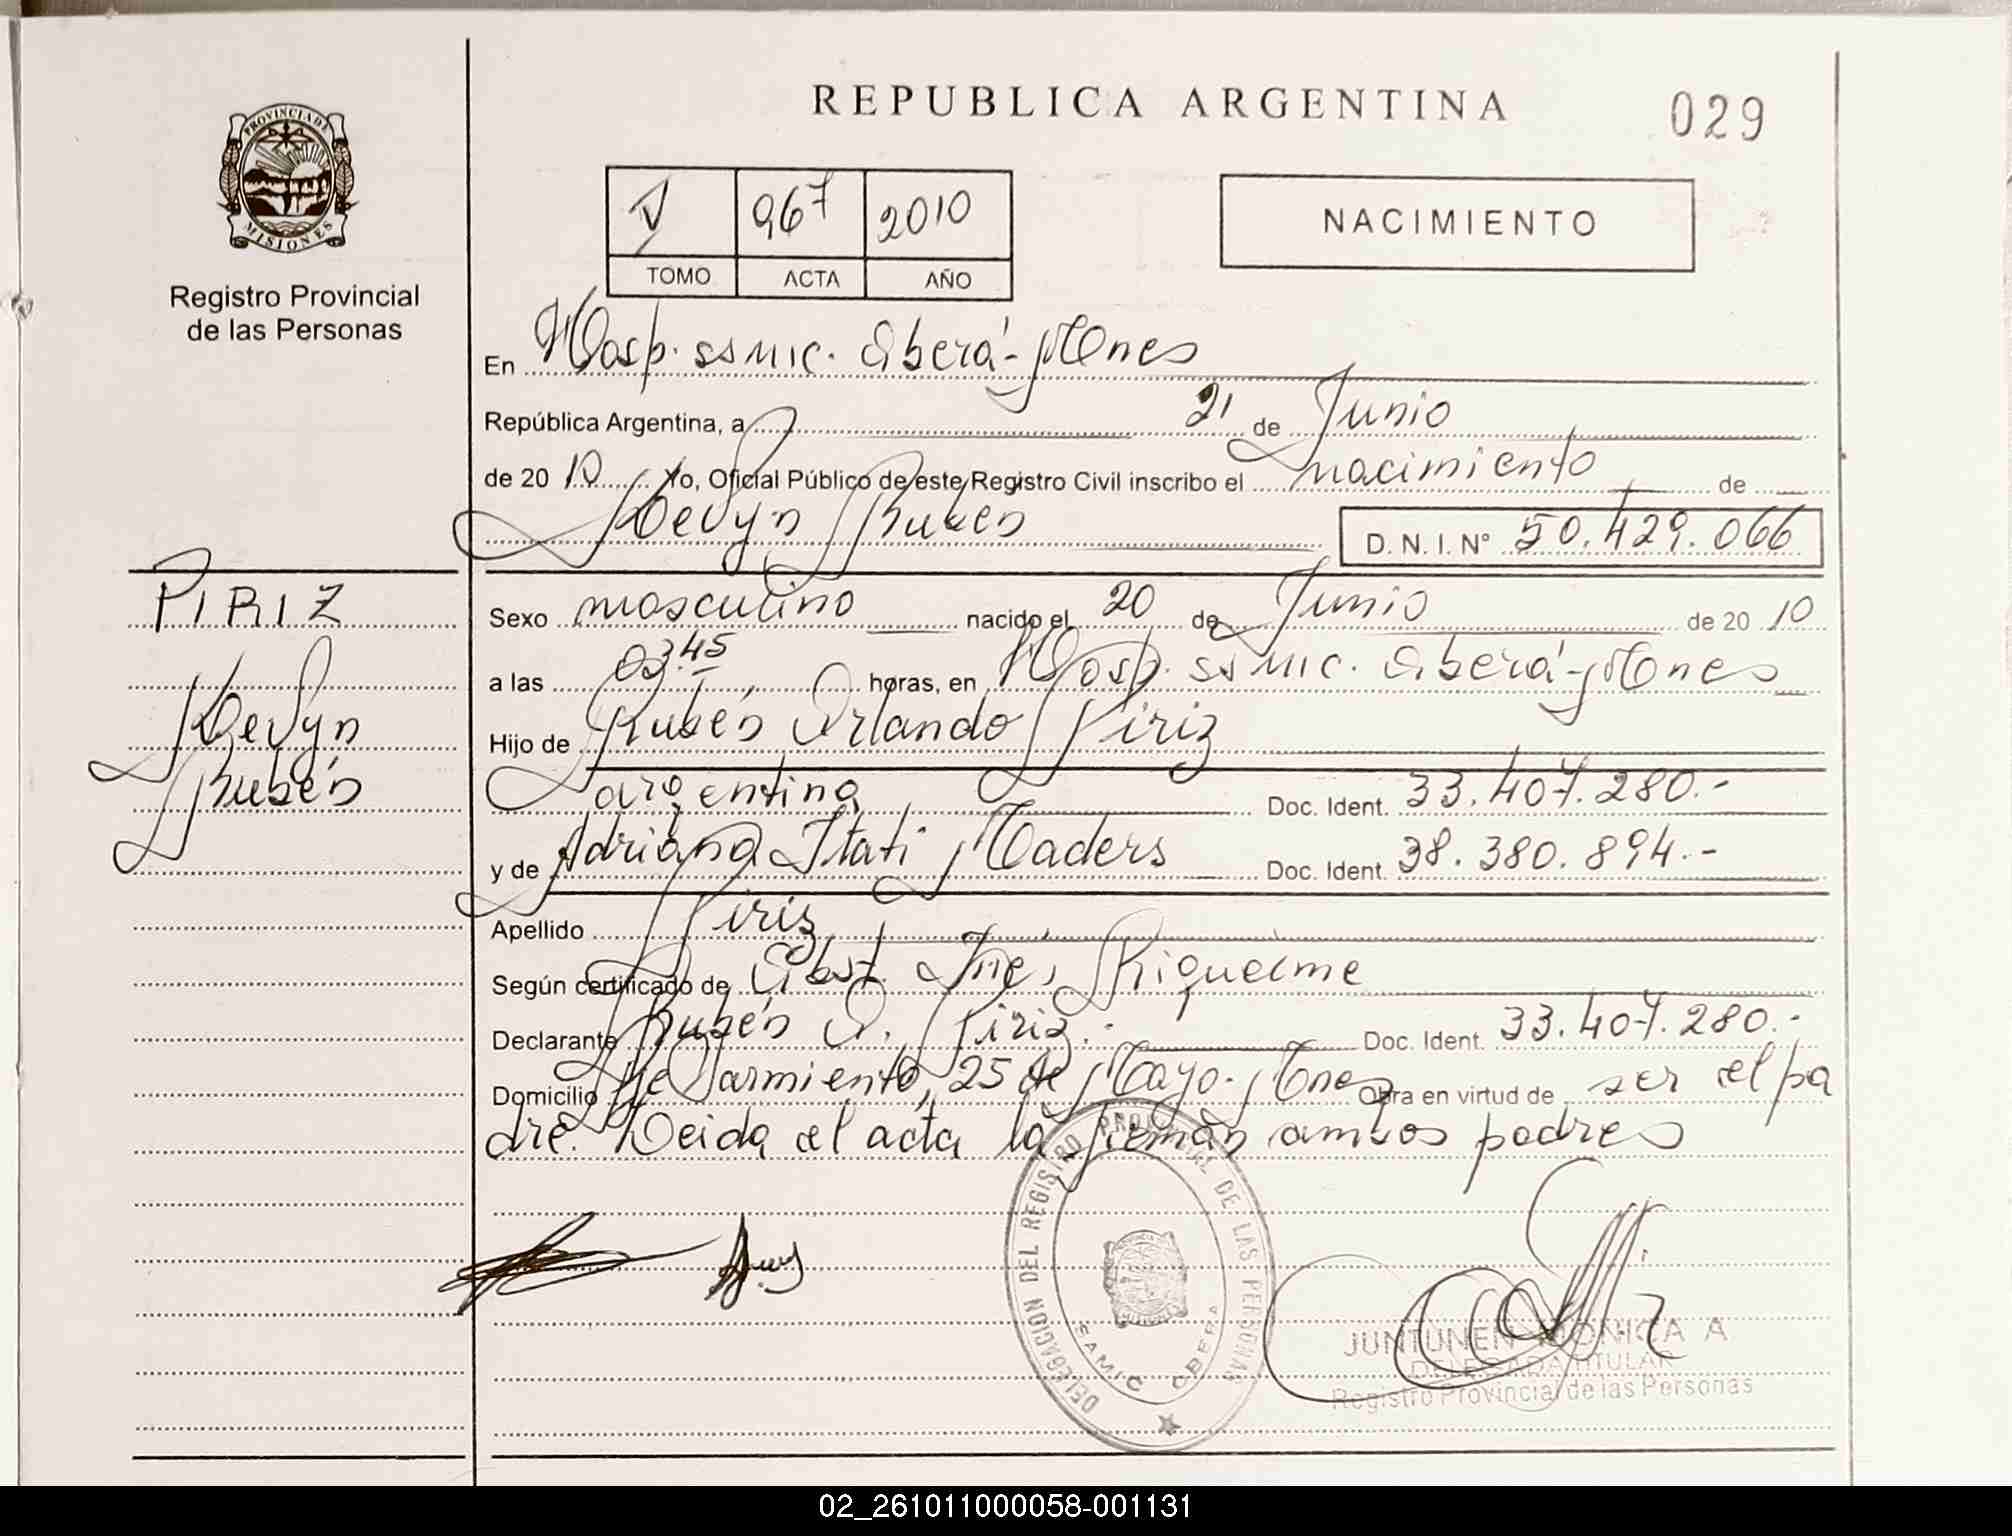 PROVINCIA DE
MISIONES
Registro Provincial
de las Personas
REPUBLICA ARGENTINA
029
V 967 2010
TOMO ACTA AÑO
NACIMIENTO
En Hosp. SSMIC. Oberá-Mnes
República Argentina, a 21 de Junio
de 2010 Yo, Oficial Público de este Registro Civil inscribo el nacimiento de
Kevyn Rubén
D. N. I. Nº 50.429.066
PIRIZ
Kevyn
Rubén
Sexo masculino nacido el 20 de Junio de 2010
a las 03.45 horas, en Hosp. SSMIC. Oberá-Mnes
Hijo de Rubén Orlando Piriz
argentino Doc. Ident. 33.407.280.-
y de Adriana Itati Maders Doc. Ident. 38.380.894.-
Apellido Piriz
Según certificado de Obst. Inés Riquelme
Declarante Rubén O. Piriz.- Doc. Ident. 33.407.280.-
Domicilio Sarmiento, 25 de Mayo-Mnes Obra en virtud de ser el pa
dre. Leida el acta la firman ambos padres
DELEGACION DEL REGISTRO PROVINCIAL DE LAS PERSONAS
SAMIC OBERA
JUNTUNEN MONICA A
DELEGADA TITULAR
Registro Provincial de las Personas
02_261011000058-001131